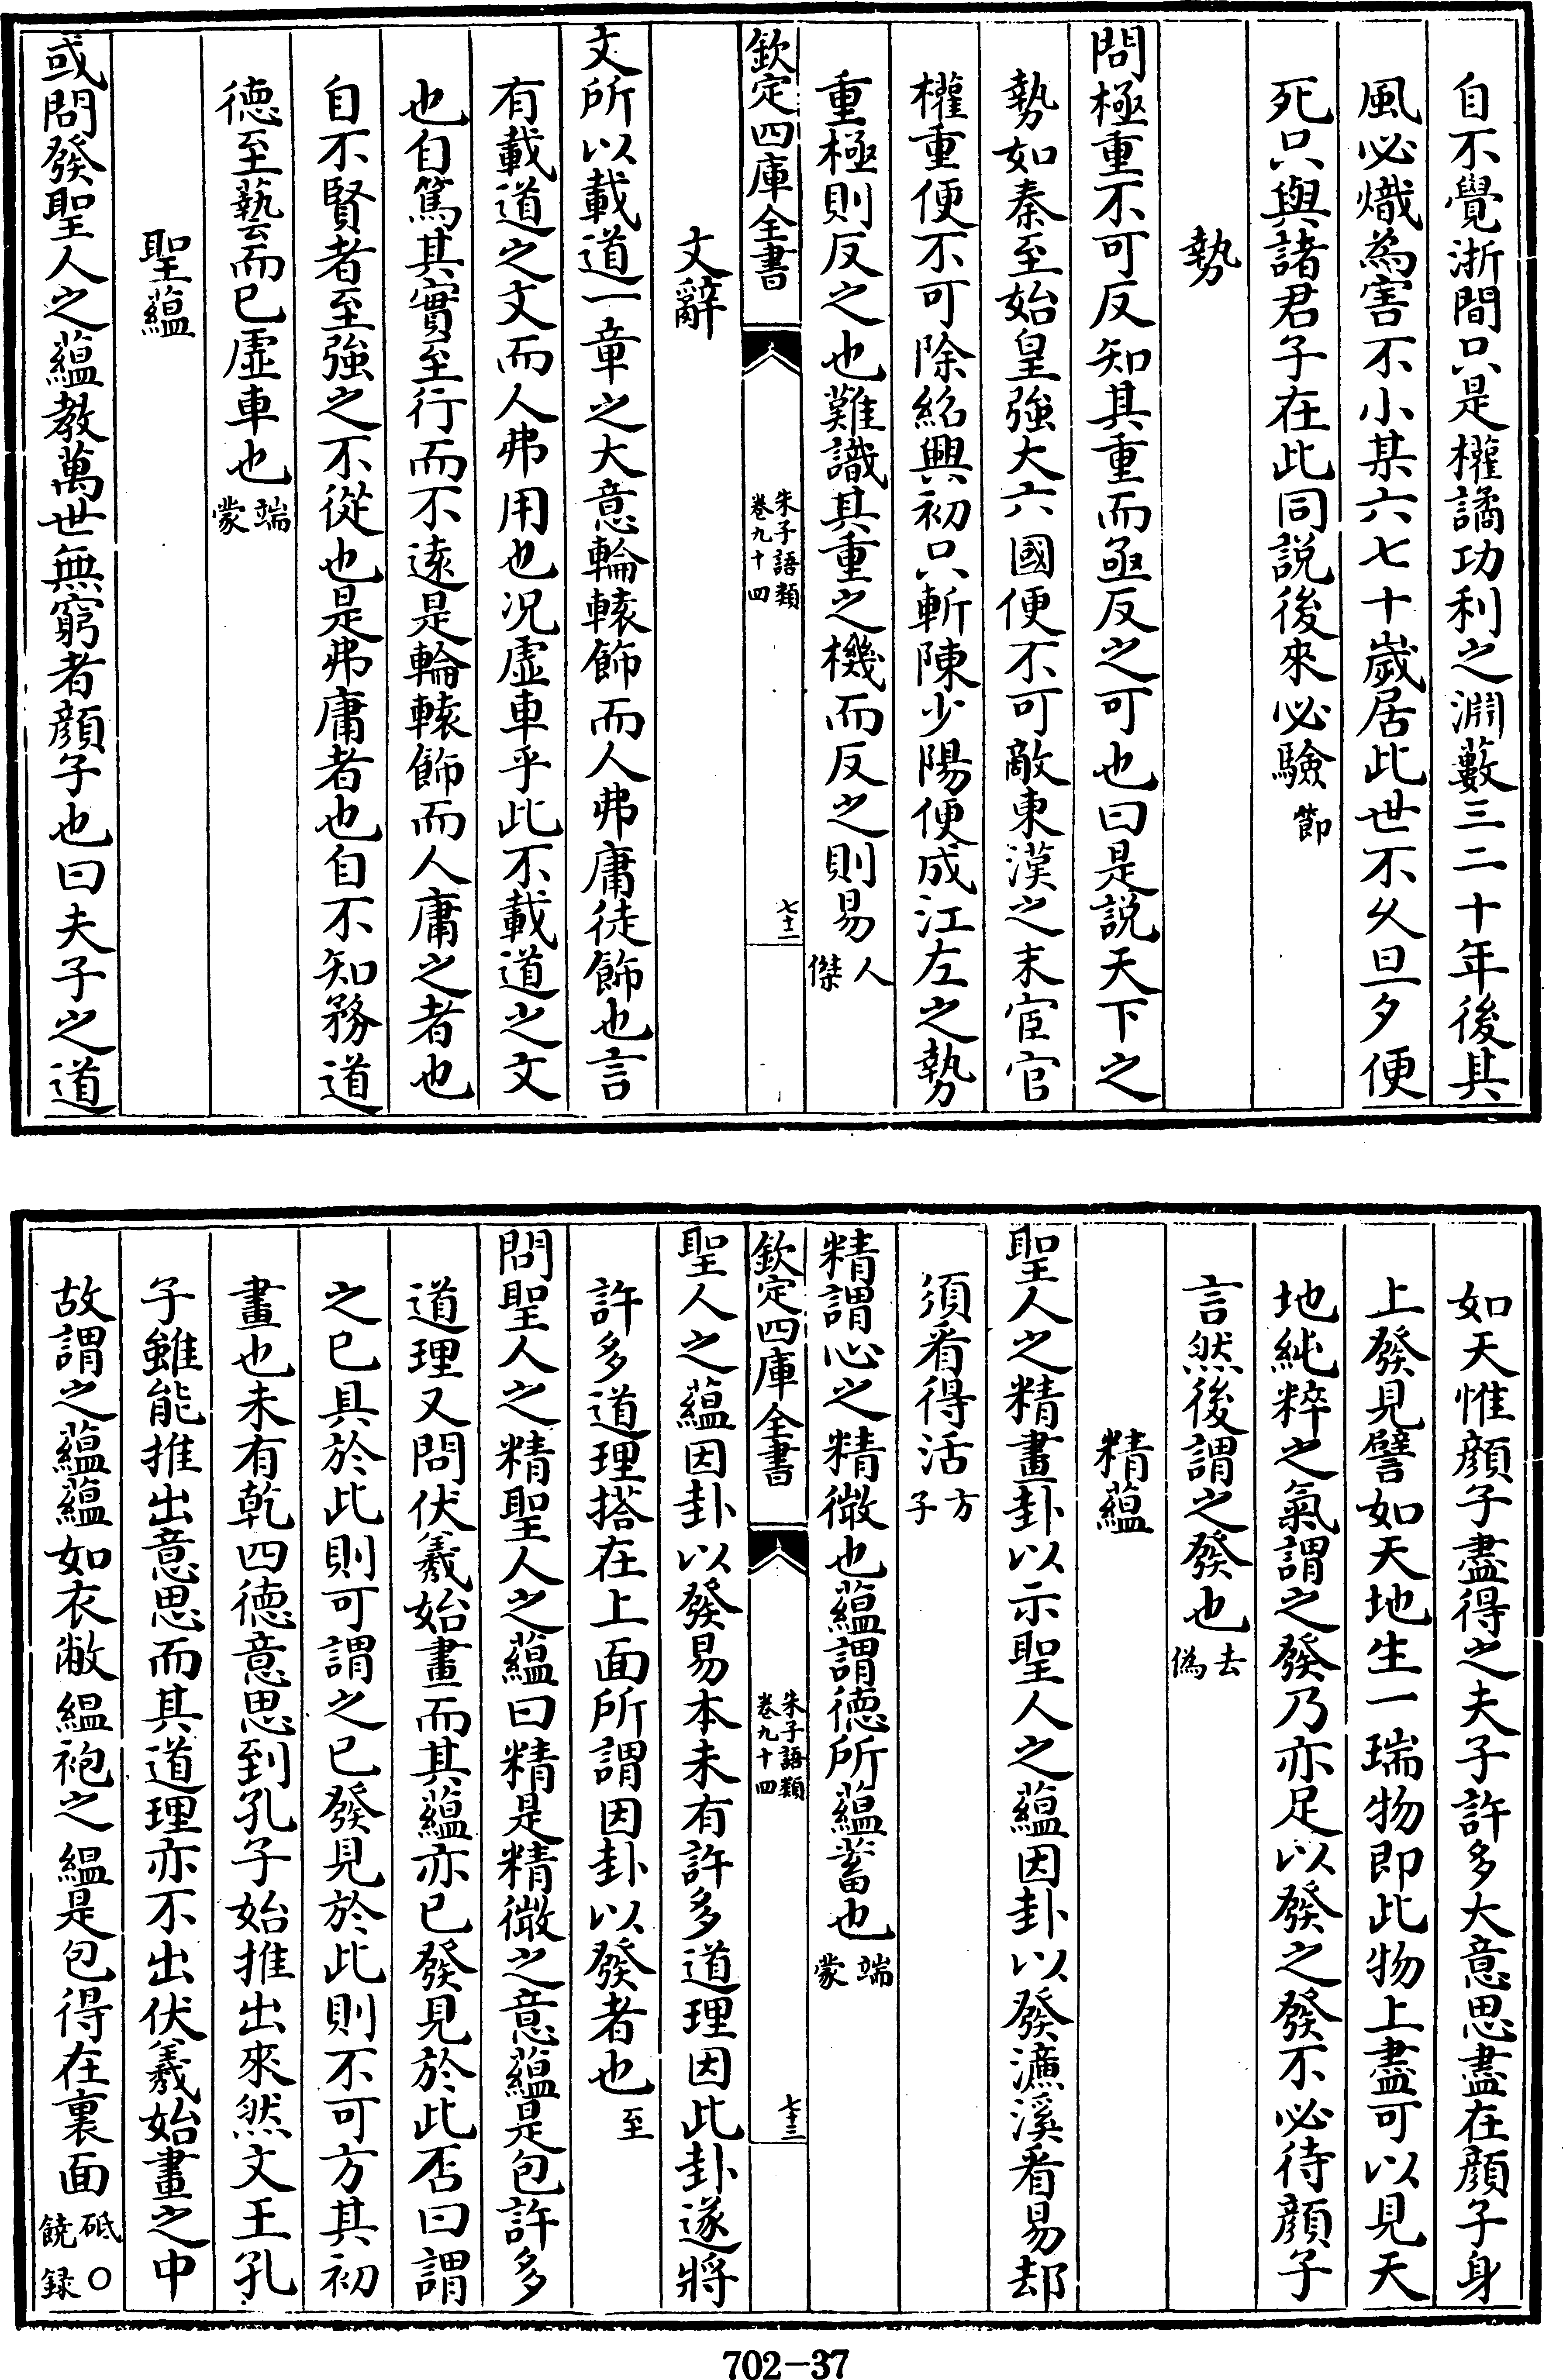 自不覺浙間只是權譎功利之淵藪三二十年後其
風必熾為害不小某六七十歲居此世不乆旦夕便
死只與諸君子在此同説後來必驗節
勢
問極重不可反知其重而亟反之可也曰是説天下之
勢如秦至始皇強大六國便不可敵東漢之末宦官
權重便不可除紹興初只斬陳少陽便成江左之勢
重極則反之也難識其重之機而反之則易人傑
欽定四庫全書
朱子語類
卷九十四
七十二
文辭
文所以載道一章之大意輪轅飾而人弗庸徒飾也言
有載道之文而人弗用也况虛車乎此不載道之文
也自篤其實至行而不逺是輪轅飾而人庸之者也
自不賢者至強之不從也是弗庸者也自不知務道
徳至藝而已虛車也端蒙
聖蘊
或問發聖人之蘊教萬世無窮者顔子也曰夫子之道
如天惟顔子盡得之夫子許多大意思盡在顔子身
上發見譬如天地生一瑞物即此物上盡可以見天
地純粹之氣謂之發乃亦足以發之發不必待顔子
言然後謂之發也去偽
精蘊
聖人之精畫卦以示聖人之蘊因卦以發濂溪看易却
須看得活方子
精謂心之精微也蘊謂徳所蘊蓄也端蒙
欽定四庫全書
朱子語類
卷九十四
七十三
聖人之蘊因卦以發易本未有許多道理因此卦遂將
許多道理搭在上面所謂因卦以發者也至
問聖人之精聖人之蘊曰精是精微之意蘊是包許多
道理又問伏羲始畫而其蘊亦已發見於此否曰謂
之已具於此則可謂之已發見於此則不可方其初
畫也未有乾四徳意思到孔子始推出來然文王孔
子雖能推出意思而其道理亦不出伏羲始畫之中
故謂之蘊蘊如衣敝緼袍之緼是包得在裏面砥〇饒録
702-37